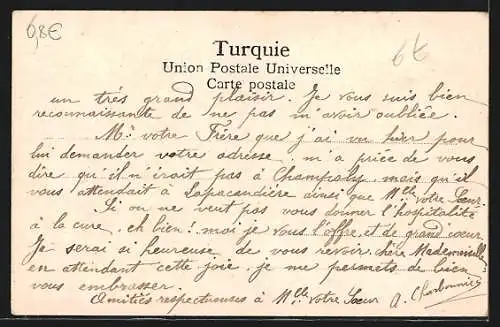 6,8€
6t
Turquie
Union Postale Universelle
Carte postale
un très grand plaisir. Je vous suis bien
reconnaissante de ne pas m'avoir oubliée.
Mr votre Frère que j'ai vu hier pour
lui demander votre adresse, m'a priée de vous
dire qu'il n'irait pas à Champoly, mais qu'il
vous attendait à Lapacaudière ainsi que Mlle votre Sœur.
Si on ne veut pas vous donner l'hospitalité
à la cure, eh bien! moi je vous l'offre, et de grand cœur
Je serai si heureuse de vous revoir, chère Mademoiselle
en attendant cette joie, je me permets de bien
vous embrasser.
Amitiés respectueuses à Mlle votre Sœur A.